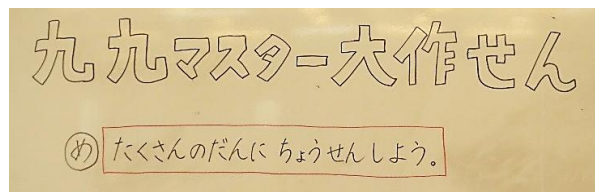 九九マスター大作せん
め たくさんのだんに ちょうせんしよう。